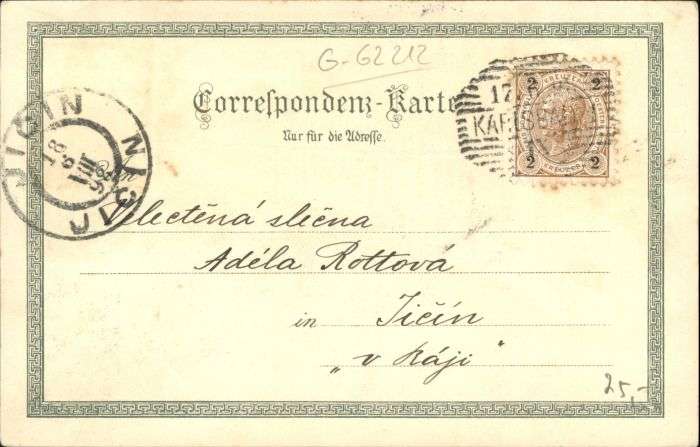 G-62212
Correspondenz-Karte
Nur für die Adresse.
2 2
2 2
KREUZER
17
JIČIN
18
8
98
JIČIN
Velectěná slečna
Adéla Rottová
in Jičín
„v Ráji"
25,-